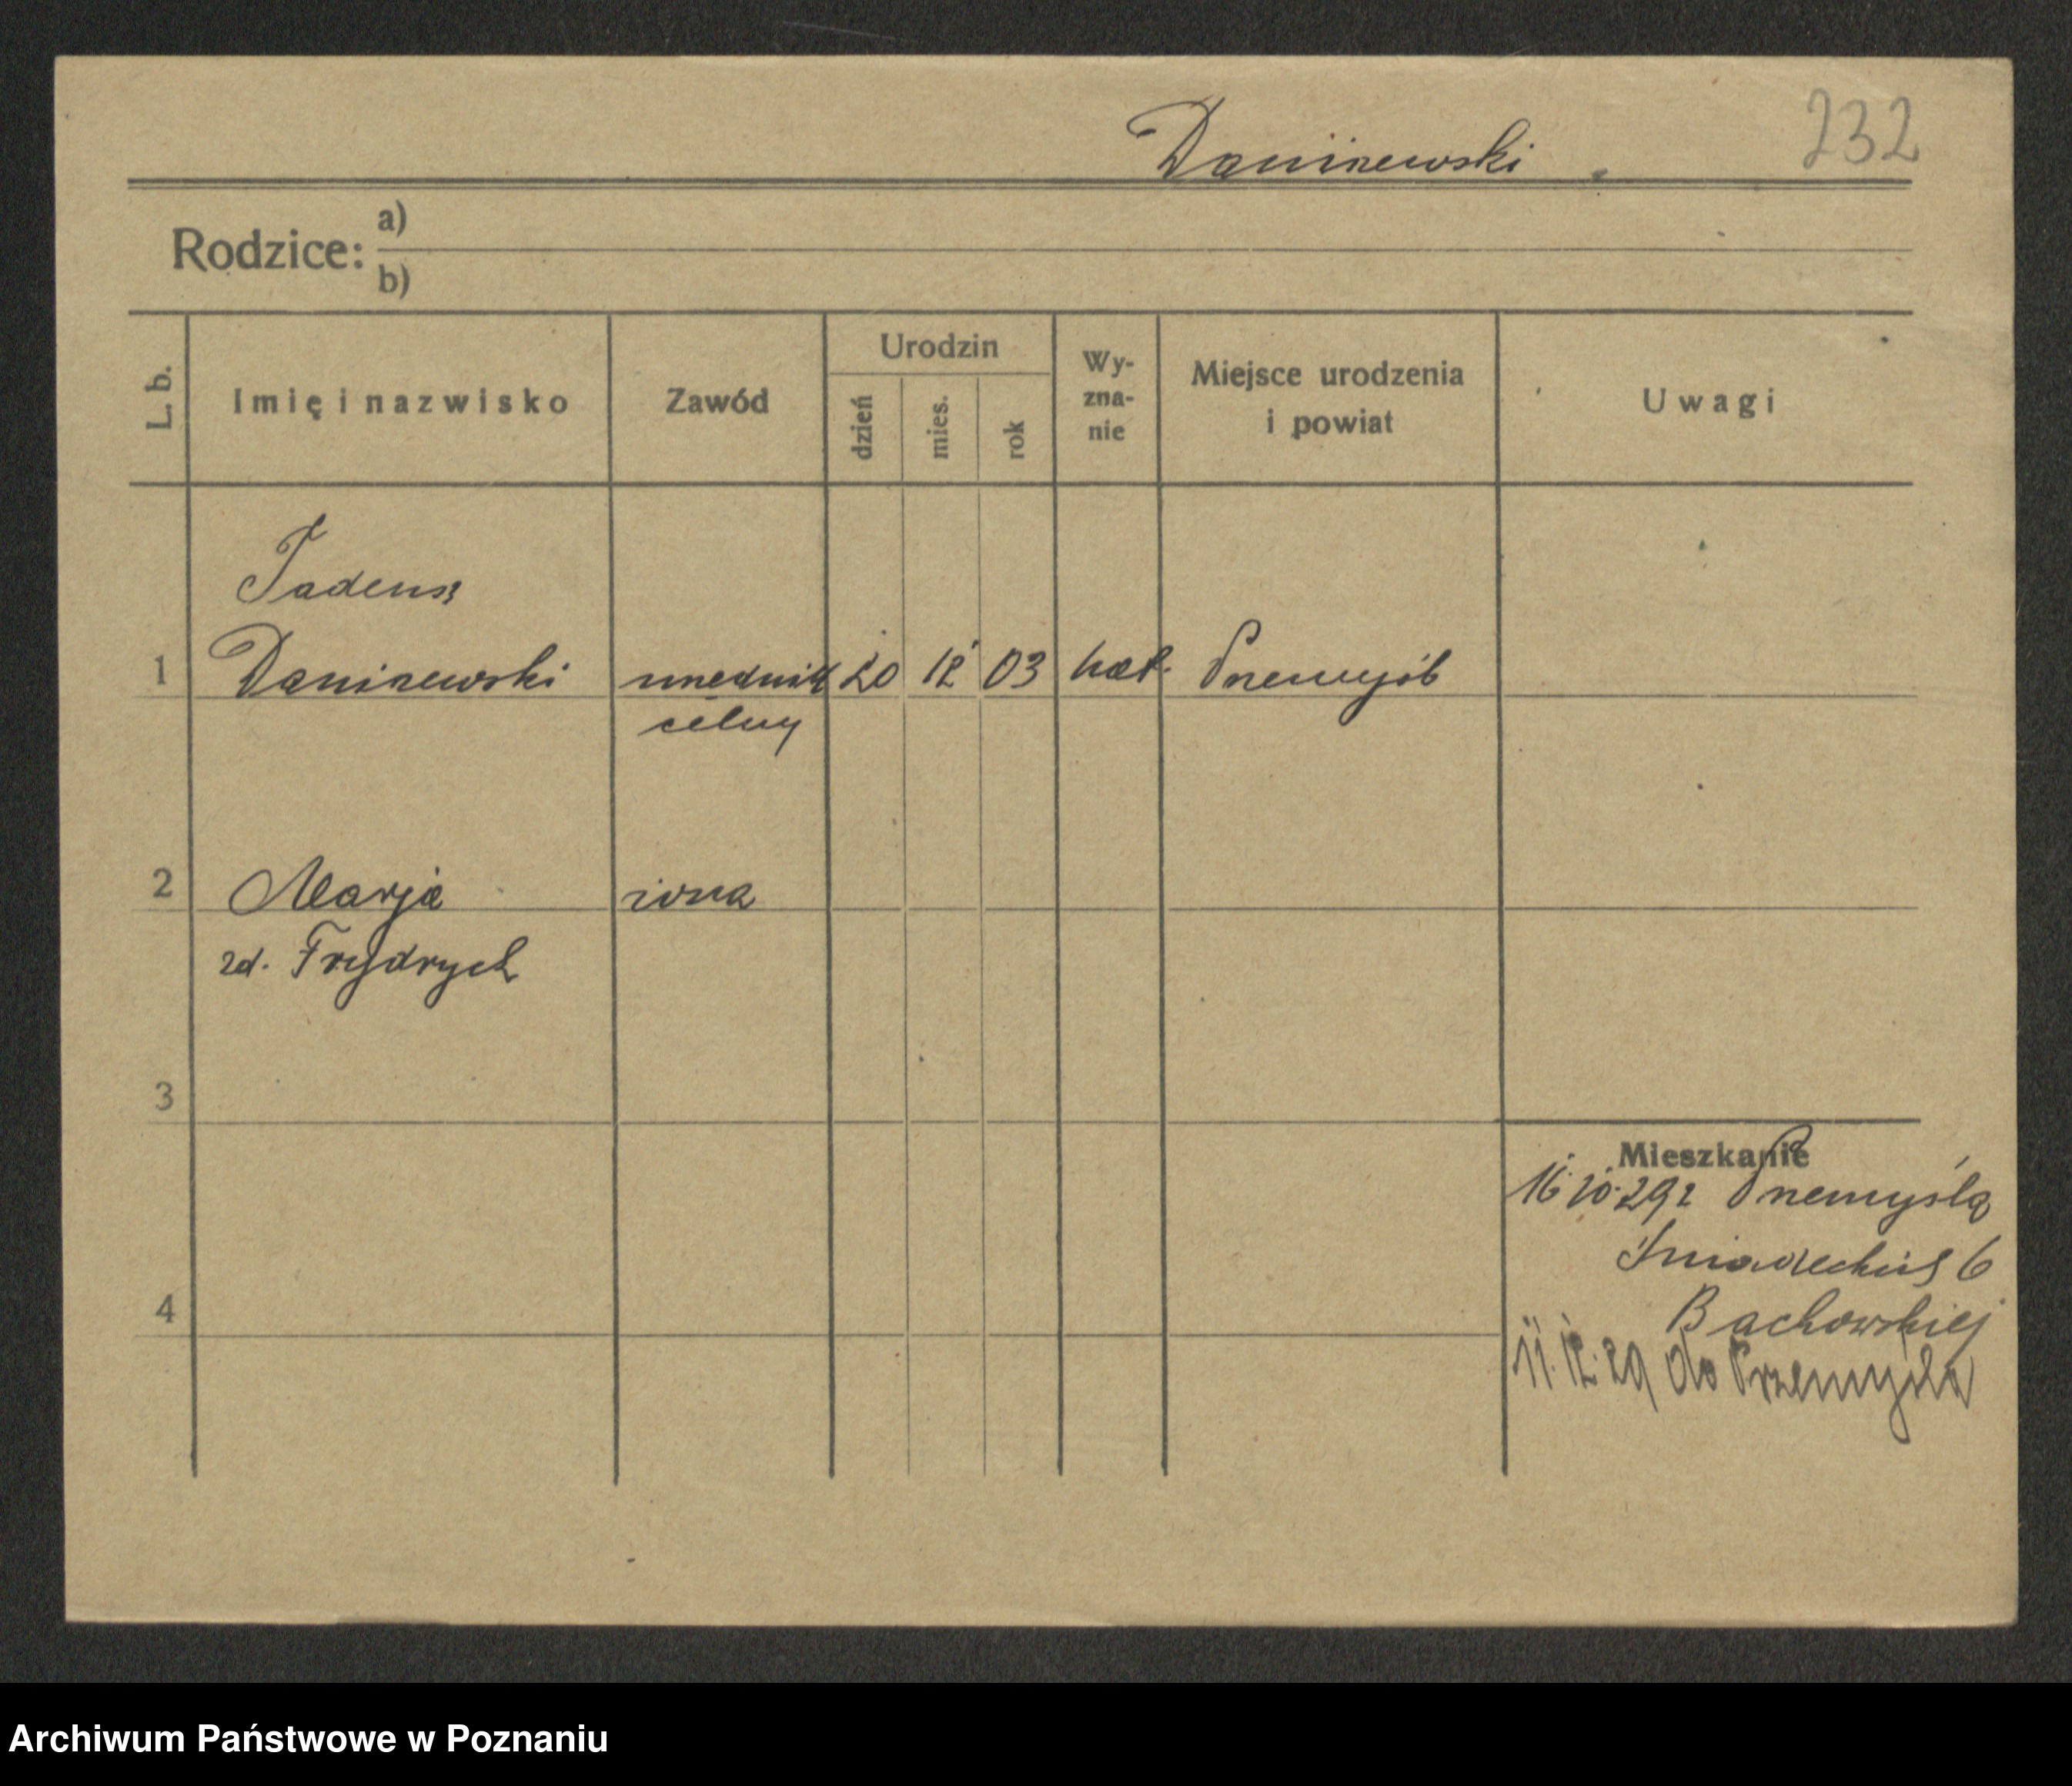 Daniszewski 232
Rodzice: a)
b)
L. b. Imię i nazwisko Zawód Urodzin dzień mies. rok Wy-zna-nie Miejsce urodzenia i powiat Uwagi
Tadeusz
1 urzędnik 20 12 03 kat. Przemyśl
celny
2 Marja żona
zd. Frydrych
3
Mieszkanie
16.10.29 z Przemyśla
Śniadeckich 6
4 Bachowskiej
11.12.29 do Przemyśla
Archiwum Państwowe w Poznaniu